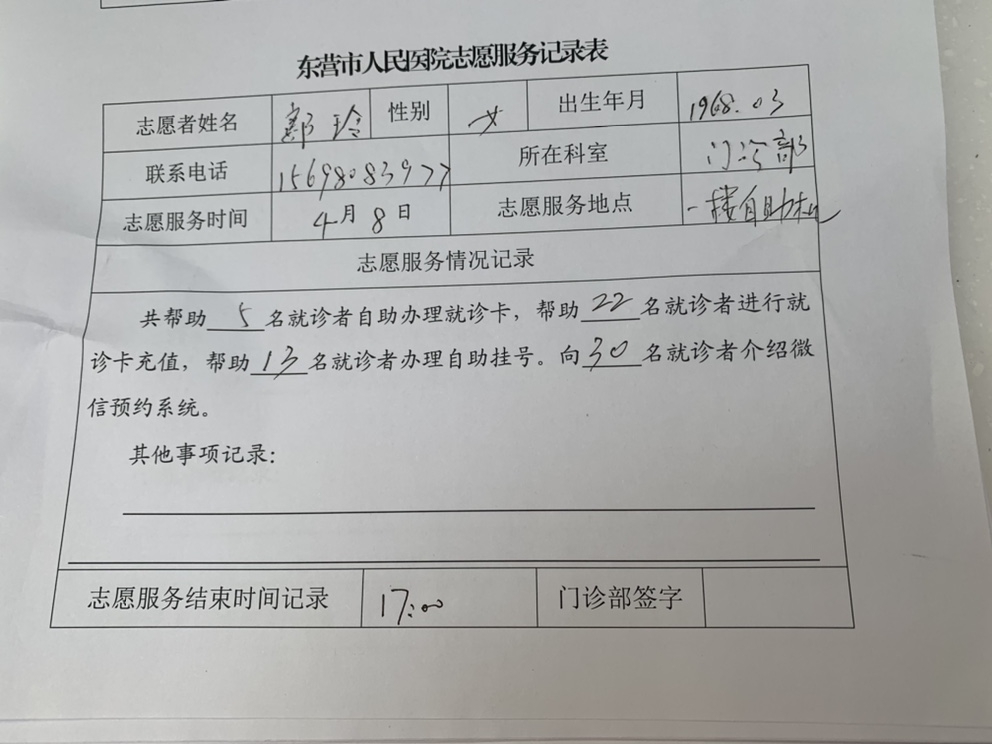 东营市人民医院志愿服务记录表
志愿者姓名 玲 性别 女 出生年月 1968.03
联系电话 15698083977 所在科室 门诊部
志愿服务时间 4月8日 志愿服务地点 一楼自助机
志愿服务情况记录
共帮助5名就诊者自助办理就诊卡，帮助22名就诊者进行就
诊卡充值，帮助13名就诊者办理自助挂号。向30名就诊者介绍微
信预约系统。
其他事项记录：
志愿服务结束时间记录 17:00 门诊部签字